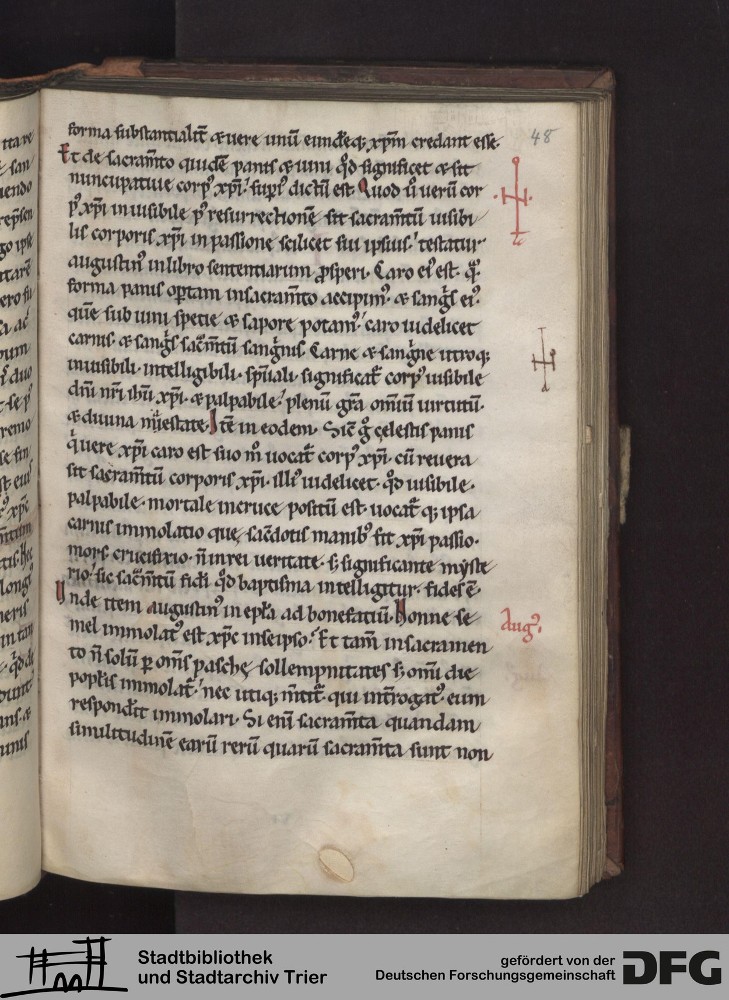 forma substantialit̄ & uere unū eundēq; xp̄m credant esse.
48
Et de sacram̄to quidē panis & uini qd̄ significet & sit
nuncupatiue corp' xp̄i. sup̄i' dictū est. Quod u̅ uerū cor
p' xp̄i inuisibile p' resurrectionē sit sacram̄tū uisibi
lis corporis xp̄i in passione scilicet sui ipsius. testatur
augustin' in libro sententiarum ꝓsperi. Caro ei' est. q̄
forma panis optam in sacram̄to accipim'. & sang̍s ei'.
quē sub uini specie & sapore potam'. caro uidelicet
carnis. & sang̍s sac̄m̄tū sang̍nis. Carne & sang̍ne utroq;
inuisibili. intelligibili. sp̄uali. significat̄ corp' uisibile
dn̄i nr̄i ih̄u xp̄i. & palpabile. plenū gr̄a om̄iū uirtutū.
& diuina maiestate. Itē in eodem. Sic̄ g̊ celestis panis
q̍ uere xp̄i caro est suo m̊ uocat̄ corp' xp̄i. cū reuera
sit sacram̄tū corporis xp̄i. illi' uidelicet. qd̄ uisibile.
palpabile. mortale in cruce positū est. uocat̄ q; ipsa
carnis immolatio quę sac̄dotis manib' fit xp̄i passio.
mors. crucifixio. n̄ in rei ueritate. s; significante myste
rio. sic sac̄m̄tū fidi qd̄ baptisma intelligitur. fides ē.
Unde item augustin' in epl̄a ad bonefatiū. Nonne se
Aug'.
mel immolat' est xp̄c in se ipso? Et tam̄ in sacramen
to n̄ solū p̲ om̄s paschę sollempnitates s; om̄i die
popl̄is immolat̄. nec utiq; m̄tit̄ qui int̄rogat' eum
respondet̄ immolari. Si eni̅ sacram̄ta quandam
similitudinē earū rerū quarū sacram̄ta sunt non
Stadtbibliothek
und Stadtarchiv Trier
gefördert von der
Deutschen Forschungsgemeinschaft
DFG